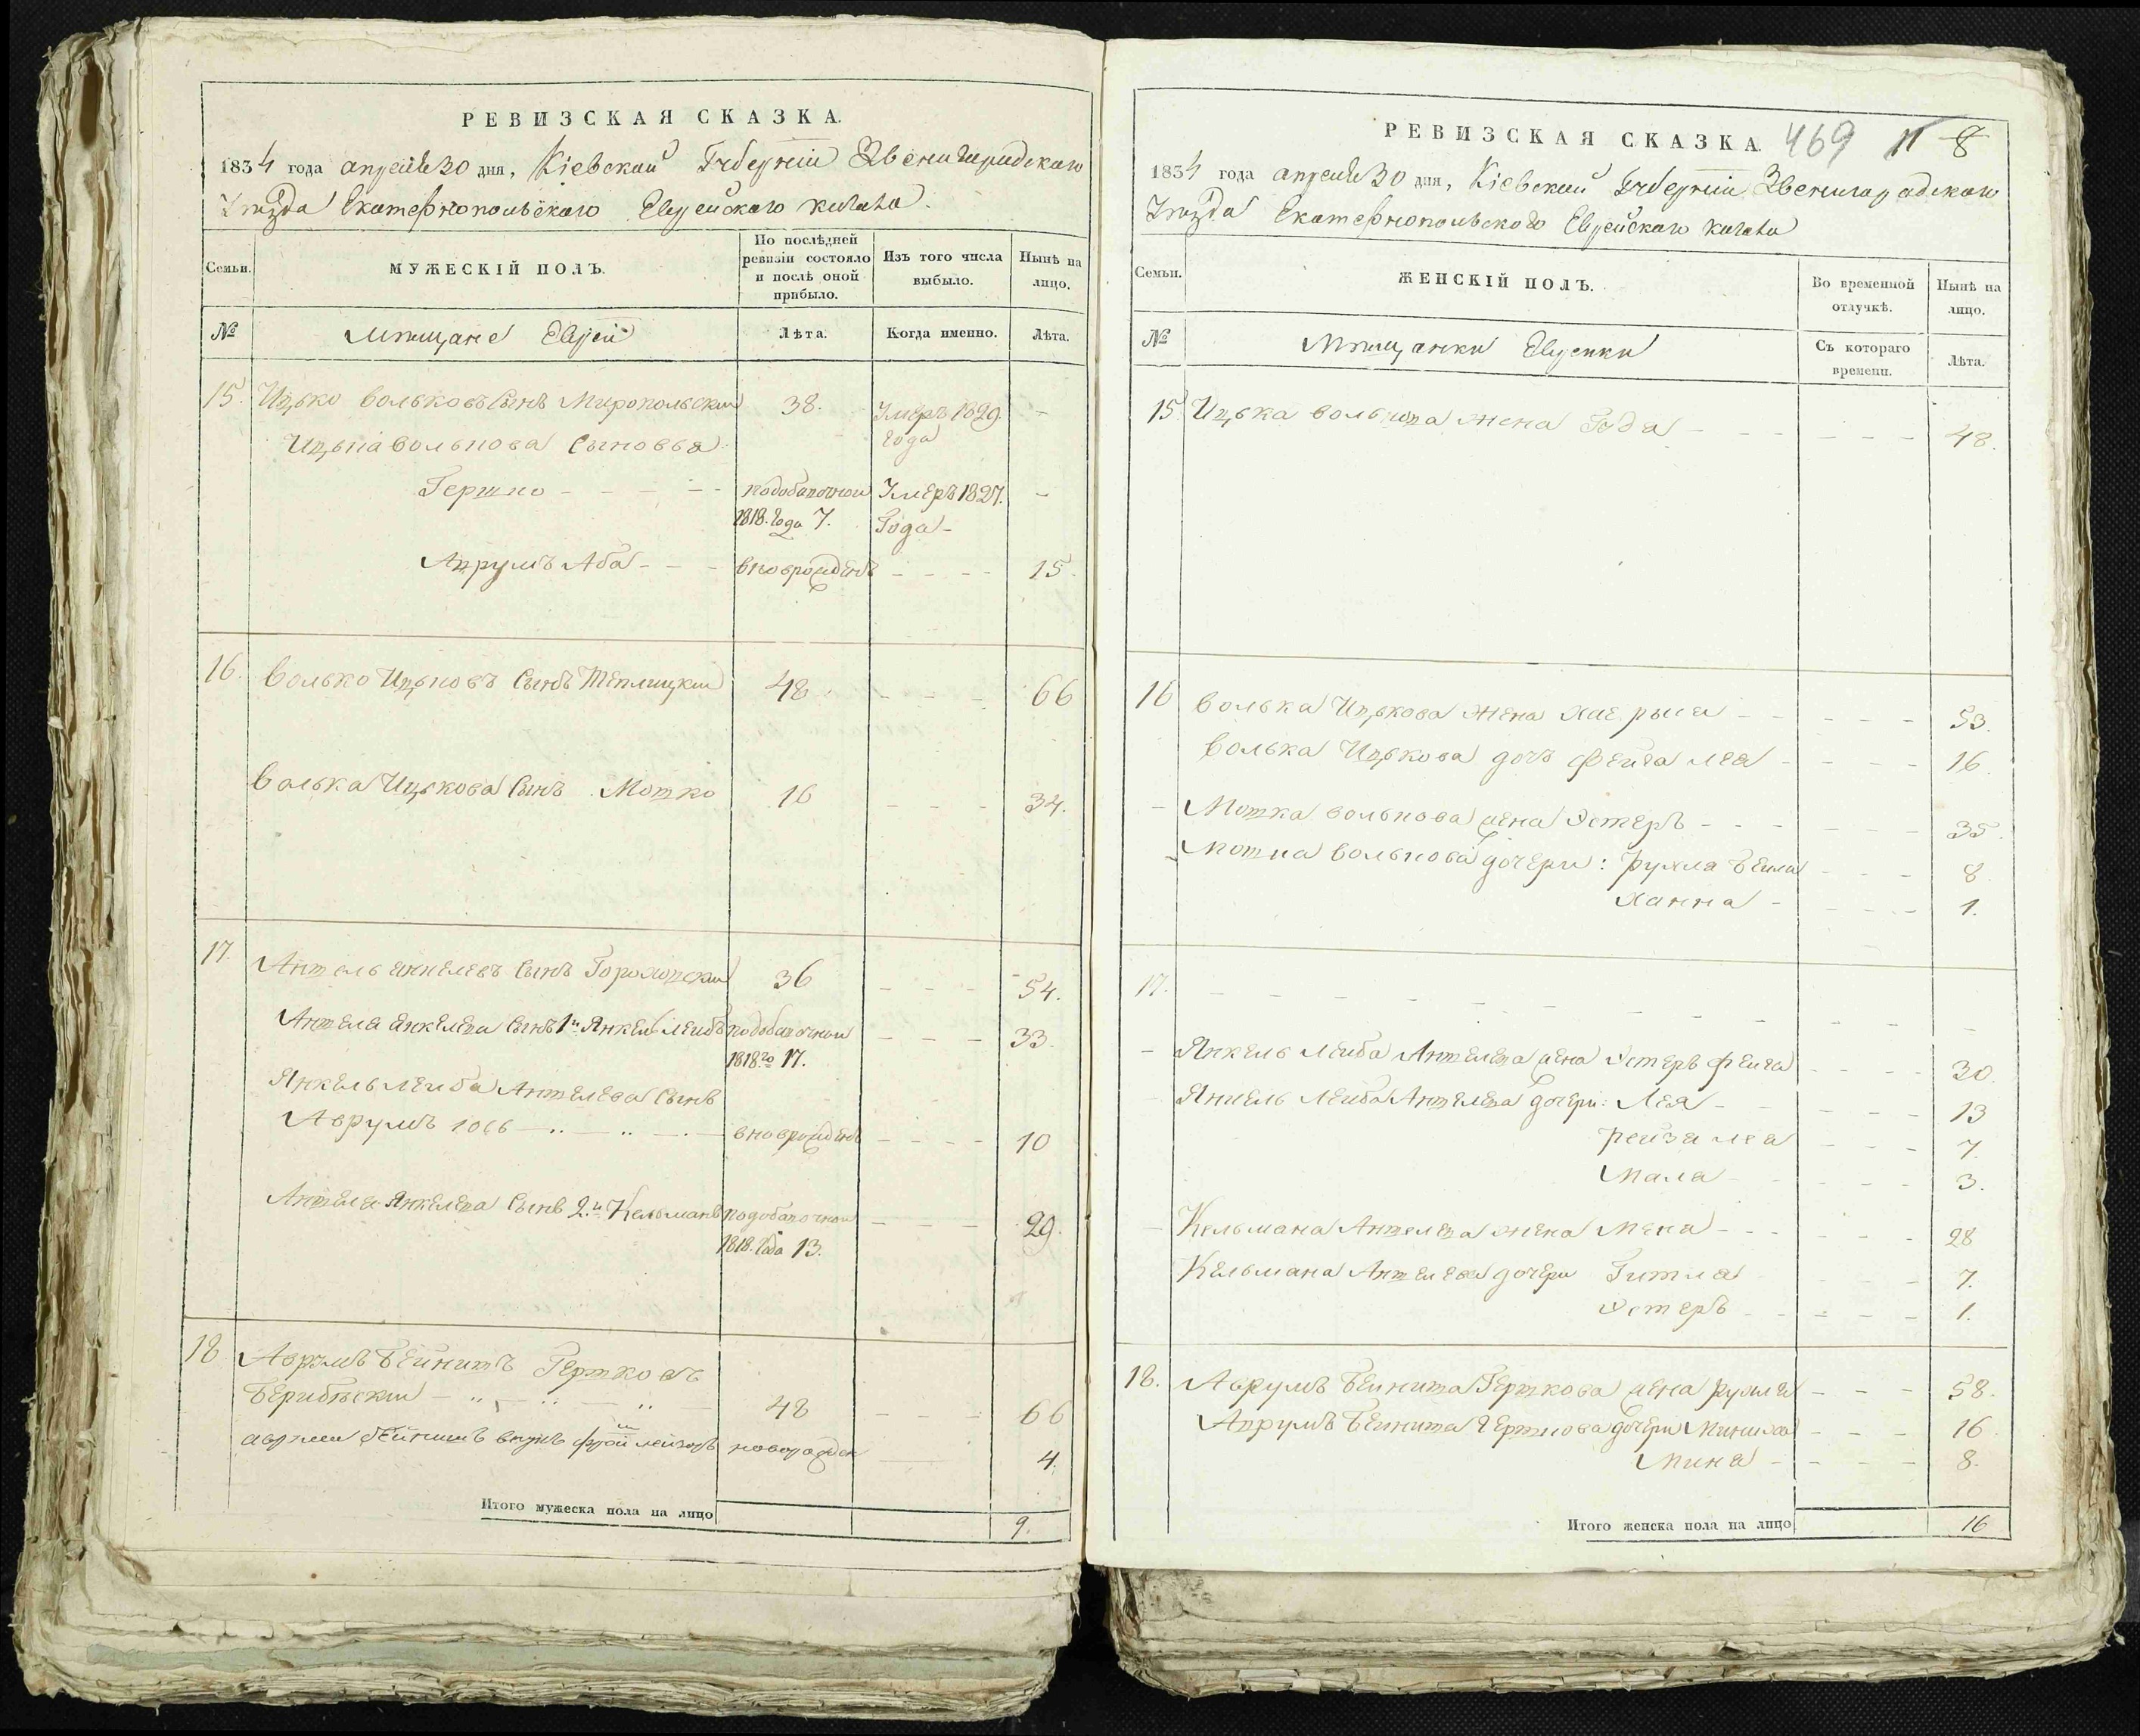 РЕВИЗСКАЯ СКАЗКА.
1834 года апреля 30 дня, Кіевской Губерніи Звенигородскаго
Уѣзда Екатеринопольскаго Еврейскаго кагала.
Семьи.
МУЖЕСКІЙ ПОЛЪ.
По послѣдней ревизіи состояло и послѣ оной прибыло.
Изъ того числа выбыло.
Нынѣ на лицо.
№
Мѣщане Евреи
Лѣта.
Когда именно.
Лѣта.
15. Ицько Вольковъ Сынъ Миропольскій 38. Умеръ 1829. года -
Ицька Волькова Сыновья
Гершко - - - - - по добавочной 1818. года 7. Умеръ 1827. Года - -
Аврумъ Аба - - - вновь рожденъ - - - - 15.
16. Волько Ицьковъ Сынъ Теплицкій 48. - - - 66
Волька Ицькова Сынъ Мотко 16 - - - 34.
17. Янкелевъ Сынъ 36 - - - 54.
Сынъ 1й Янкель Лейбъ по добавочной 1818го 17. - - - 33.
Янкель Лейба Сынъ
Аврумъ вновь рожденъ - - - - 10
Янкелева Сынъ 2й Кельманъ по добавочной 1818. года 13. - - - 29.
18 Аврумъ Бейнишъ Гершковъ
48 - - - 66
Бейнишъ внукъ 4.
Итого мужеска пола на лицо 9.
РЕВИЗСКАЯ СКАЗКА 469 11 8
1834 года апреля 30 дня, Кіевской Губерніи Звенигородскаго
Уѣзда Екатеринопольскаго Еврейскаго кагала
Семьи.
ЖЕНСКІЙ ПОЛЪ.
Во временной отлучкѣ.
Нынѣ на лицо.
№
Мѣщанки Еврейки
Съ котораго времени.
Лѣта.
15 Ицька Волькова жена Года - - - - - - - 48.
16 Волька Ицькова жена - - - - - - 53.
Волька Ицькова дочь Фейга Лея - - - - - 16.
- Мотка Волькова жена Эстеръ - - - - - - 35.
- Мотка Волькова дочери: Рухля Бейла - - - 8.
Ханна - - - - - 1.
17. - - - - - - - - - - -
- Янкель Лейба жена Эстеръ Фейга - - - - 30.
Янкель Лейба дочери: Лея - - - - - 13
Рейза Лея - - - 7.
Мала - - - - 3.
- Кельмана жена - - - - - - 28
Кельмана дочери Гитля - - - 7.
Эстеръ - - - - - 1.
18. Аврумъ Бейниша Гершкова жена Рухля - - - 58.
Аврумъ Бейниша Гершкова дочери - - - 16.
Мина - - - - - 8.
Итого женска пола на лицо 16